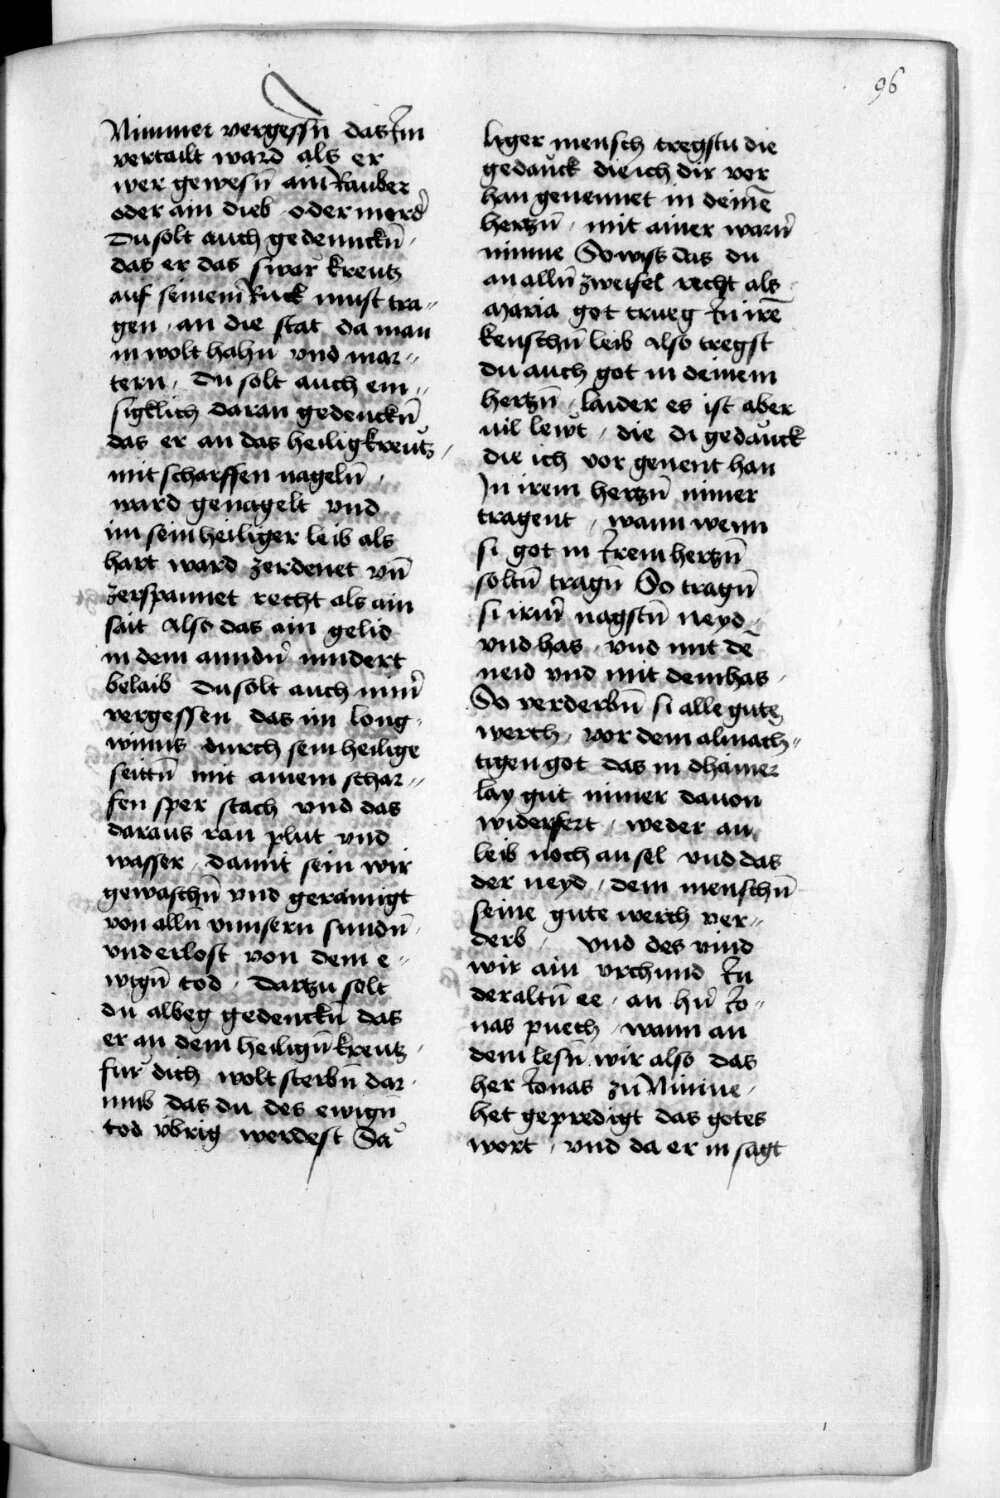 96
Nimmer vergessn̄ das Im
vertailt ward als er
wer gewesn̄ ain Rauber
oder ain dieb · oder mord͛
Du solt auch gedennckn̄ ·
das er das swar kreutz
auf seinem Ruck must tra-
gen · an die stat da man
in wolt hahn̄ vnd mar-
tern · Du solt auch em-
sigklich daran gedenckn̄
das er an das heilig kreutz ·
mit scharffen nageln̄ ·
ward genagelt vnd
im sein heiliger leib als
hart ward zerdenet vn̄
zerspannet recht als ain
sait Also das ain gelid
in dem anndn͛ nindert
belaib Du solt auch nim͛
vergessen das im long-
winus durch sein heilige
seittn̄ mit ainem schar-
fen sper stach vnd das
daraus ran plut vnd
wasser · damit sein wir
gewaschn̄ vnd geramigt
von alln̄ vnnsern sundn̄ ·
vnd erlost von dem e-
wign̄ tod · Dartzu solt
du albeg gedenckn̄ das
er an dem heilign̄ kreutz ·
fur dich wolt sterbn̄ dar-
umb das du des ewign̄
tod vbrig werdest Sa
liger mensch tregstu die
gedanck die ich dir vor
han genennet in deinē
hertzn̄ · mit ainer warn͛
minne So wiss das du
an alln̄ zweifel recht als ·
Maria got trueg In irē
keuschn̄ leib Also tregst
du auch got in deinem
hertzn̄ · laider es ist aber
vil lewt · die di gedanck
die ich vor genent han
In irem hertzn̄ nimer
tragent · wann wenn
si got in Irem hertzn̄
soltn̄ tragn̄ So tragn̄
si irm͛ nagstn̄ neyd ·
vnd has · vnd mit dē
neid vnd mit dem has ·
So verderbn̄ si alle gute
werch · vor dem almach-
tigen got das in dhainer
lay gut nimer dauon
widerfert · weder an
leib noch an sel vnd das
der neyd · dem menschn̄
seine gute werch ver-
derb · vnd des vind
wir ain vrchund In
der altn̄ ee · an hn͛ Jo-
nas puech · wann an
dem lesn̄ wir also das
her Jonas zu Niniue ·
het gepredigt das gotes
wort · vnd da er in sagt